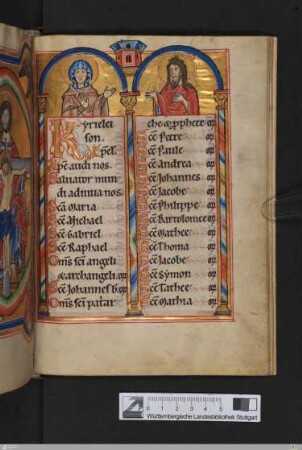 Kyrielei
son.
Xpe el.
Xpe audi nos
Saluator mun
di adiuua nos
Sca Maria
Sce Michael
Sce Gabriel
Sce Raphael
Oms sci angeli
& archangeli or
Sce Johannes b. or
Oms sci patar
che & pphete or
Sce Petre or
Sce Paule or
Sce Andrea or
Sce Johannes or
Sce Jacobe or
Sce Philippe or
Sce Bartolomee or
Sce Mathee or
Sce Thoma or
Sce Jacobe or
Sce Symon or
Sce Tathee or
Sce Mathia or
0 1 2 3 4 5
Württembergische Landesbibliothek Stuttgart